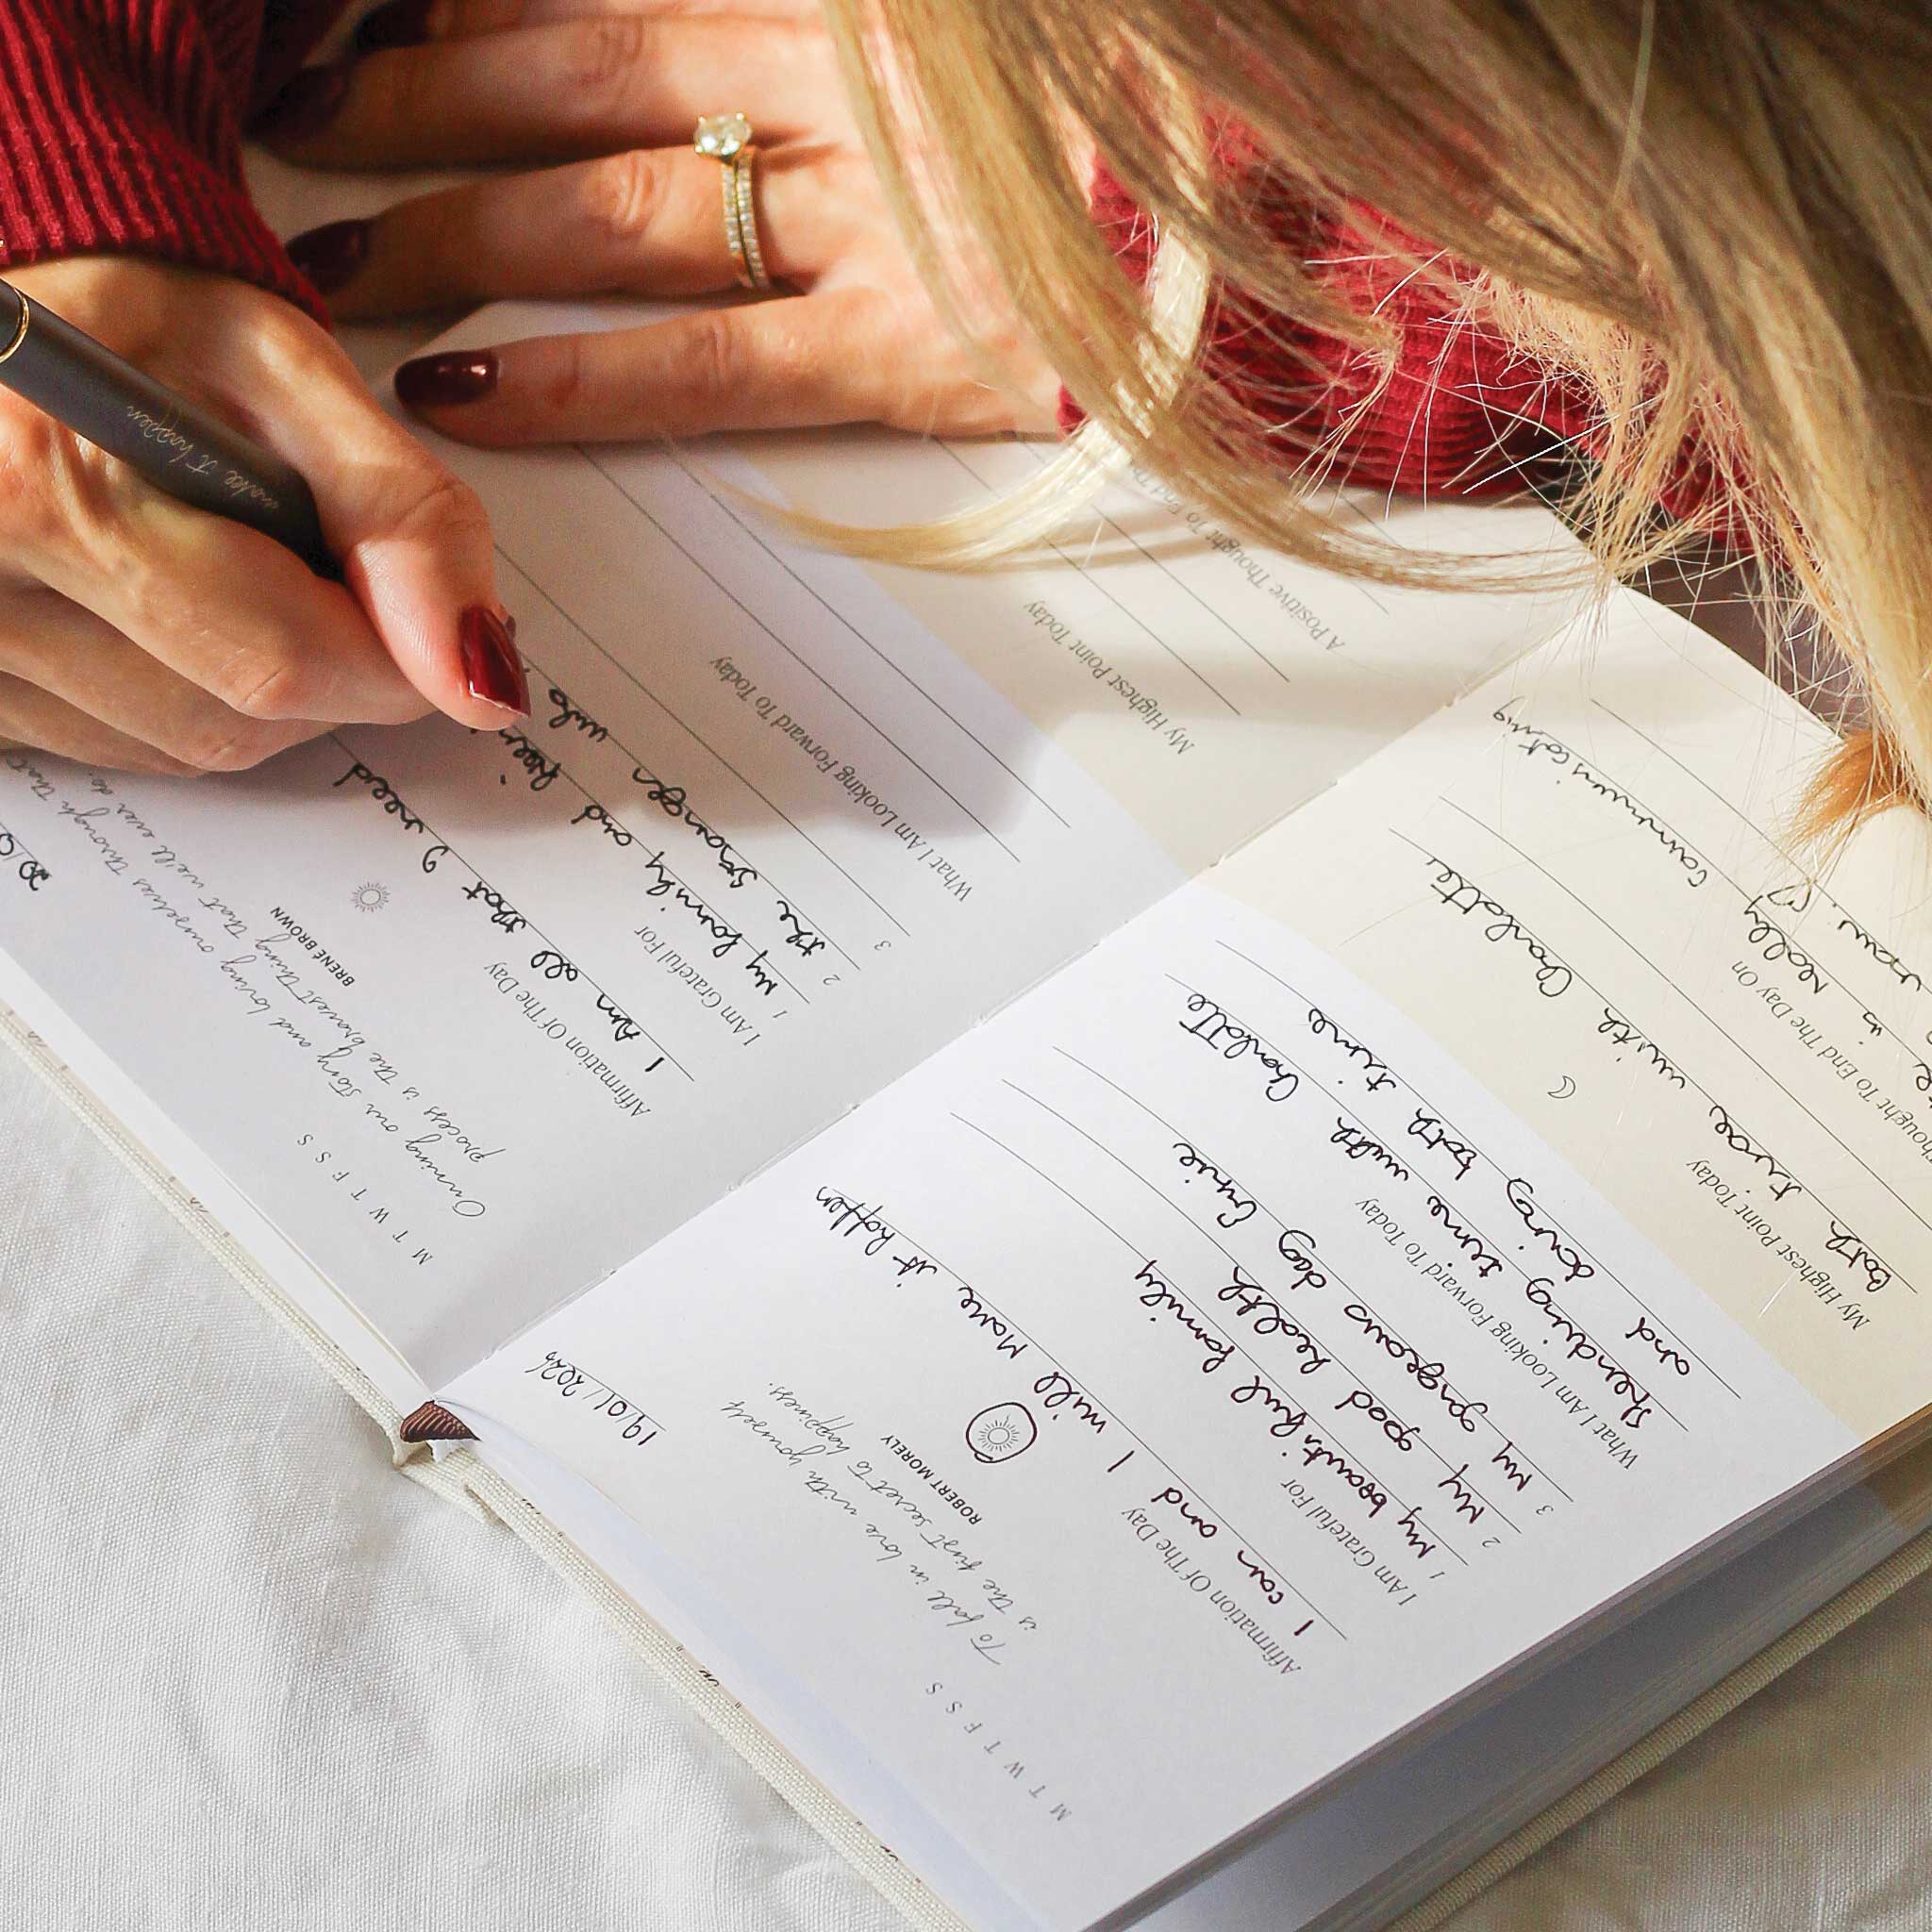 M T W T F S S 19/01/2024
To fall in love with yourself
is the first secret to happiness.
ROBERT MORELY
Affirmation Of The Day
I can and I will Make it happen
I Am Grateful For
1 My beautiful family
2 My good health
3 My gorgeous dog Ernie
What I Am Looking Forward To Today
Spending time with Charlotte
and doing bath time
My Highest Point Today
Bath time with Charlotte
Thought To End The Day On
is Really Communicating
now! ♡
M T W T F S S 20/0
Owning our story and loving ourselves through that
process is the bravest thing that we'll ever do.
BRENÉ BROWN
Affirmation Of The Day
I Am all that I need
I Am Grateful For
1 My family and
2 the stranger who
3
What I Am Looking Forward To Today
My Highest Point Today
A Positive Thought To End
make it happen